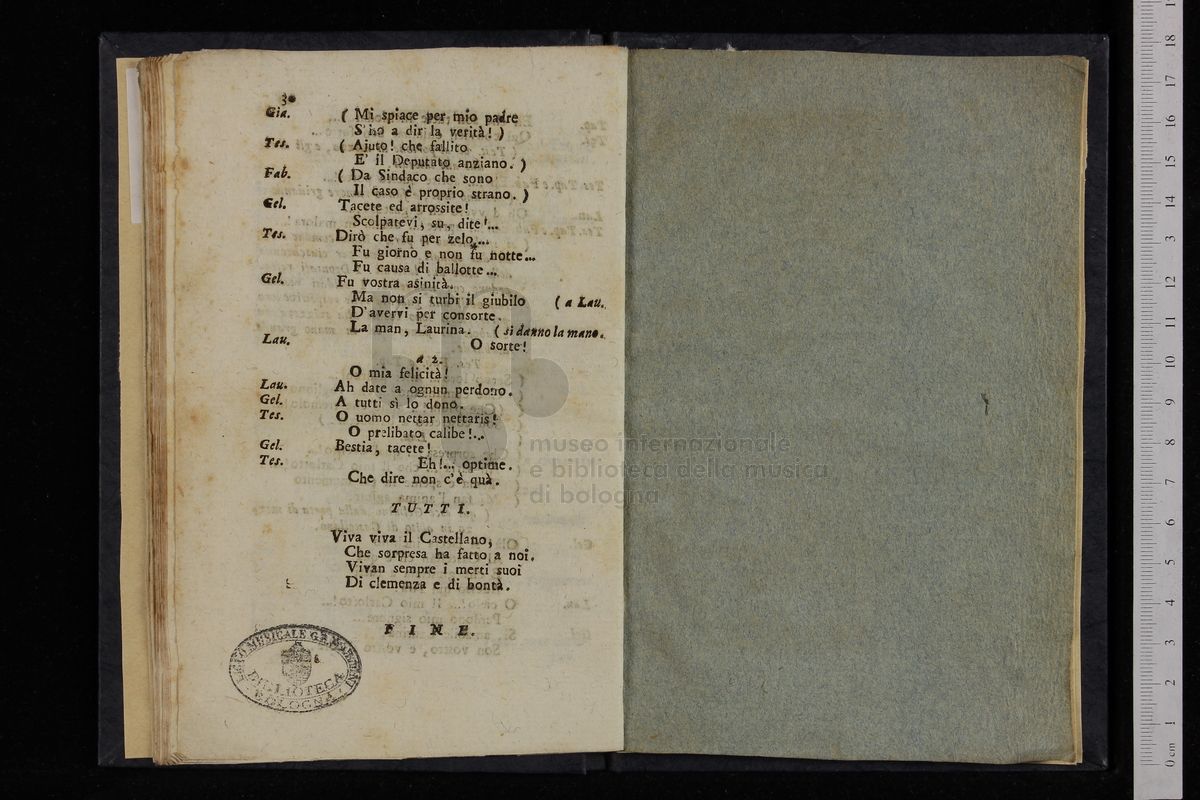 Gia. ( Mi spiace per mio padre
S'ho a dir la verità! )
Tes. ( Ajuto! che fallito
E' il Deputato anziano. )
Fab. ( Da Sindaco che sono
Il caso è proprio strano. )
Gel. Tacete ed arrossite!
Scolpatevi, su, dite!...
Tes. Dirò che fu per zelo...
Fu giorno e non fu notte...
Fu causa di ballotte...
Gel. Fu vostra asinità.
Ma non si turbi il giubilo ( a Lau.
D'avervi per consorte.
La man, Laurina. ( si danno la mano.
Lau. O sorte!
a 2.
O mia felicità!
Lau. Ah date a ognun perdono.
Gel. A tutti sì lo dono.
Tes. O uomo nettar nettaris!
O prelibato calibe!...
Gel. Bestia, tacete!
Tes. Eh!... optime.
Che dire non c'è quà.
TUTTI.
Viva viva il Castellano,
Che sorpresa ha fatto a noi.
Vivan sempre i merti suoi
Di clemenza e di bontà.
FINE.
LICEO MUSICALE G.B. MARTINI
BIBLIOTECA
BOLOGNA
museo internazionale
e biblioteca della musica
di bologna
0 cm 1 2 3 4 5 6 7 8 9 10 11 12 13 14 15 16 17 18